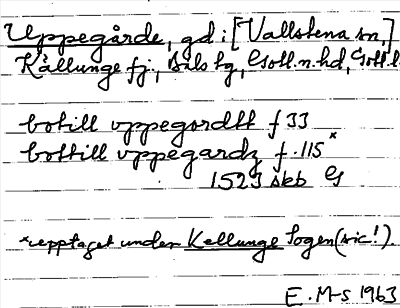 Uppegårde, gd: [Vallstena sn,]
Källunge fj., Bäls tg, Gotl.n.hd, Gotl.l.
botill vppegordtt f 33
bottill vppegardz f. 115 x
1523 skb es
x upptaget under Kellunge Sogen (sic!).
E. M-s 1963